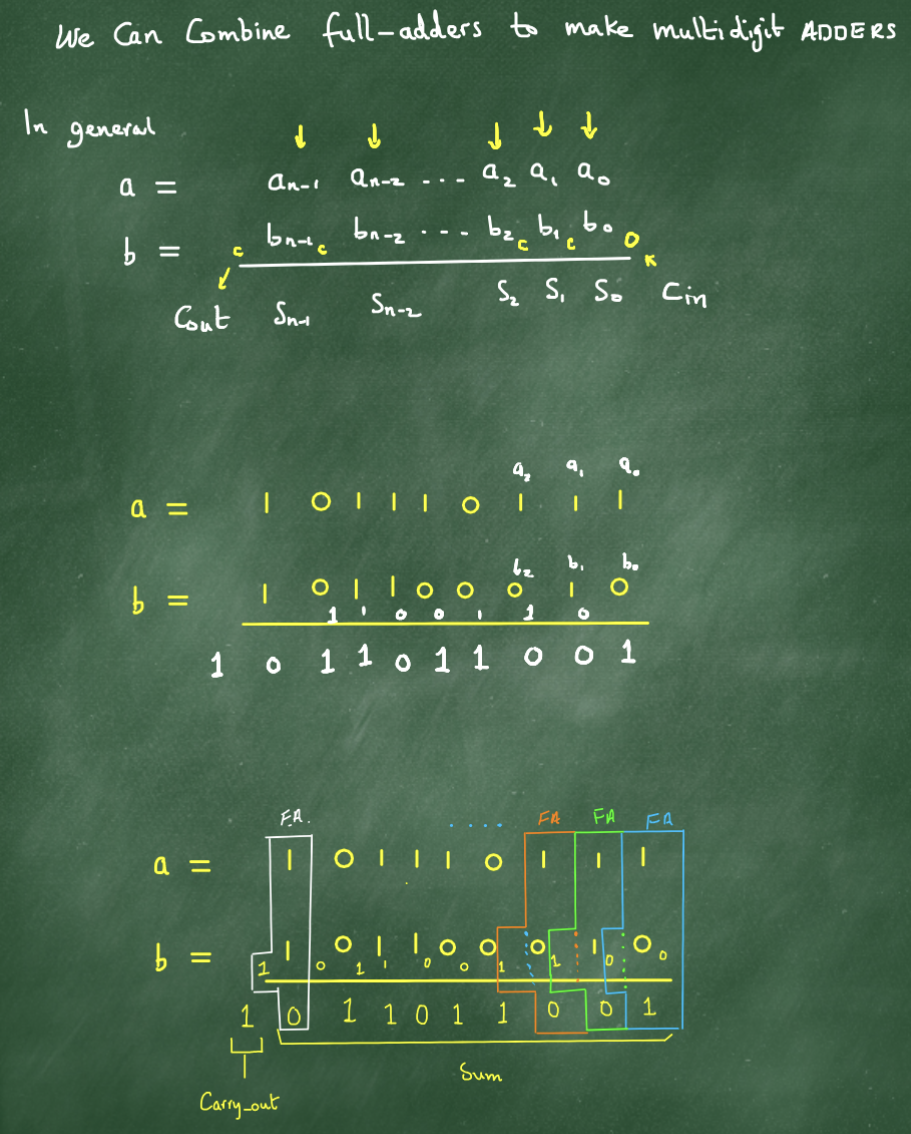 We Can Combine full-adders to make multidigit ADDERS
In general
a = aₙ₋₁ aₙ₋₂ .... a₂ a₁ a₀
b = bₙ₋₁ bₙ₋₂ .... b₂ b₁ b₀
c c c c 0
Cout Sₙ₋₁ Sₙ₋₂ S₂ S₁ S₀ Cin
a₂ a₁ a₀
a = 1 0 1 1 1 0 1 1 1
b₂ b₁ b₀
b = 1 0 1 1 0 0 0 1 0
1 1 0 0 1 1 0
1 0 1 1 0 1 1 0 0 1
FA. .... FA FA FA
a = 1 0 1 1 1 0 1 1 1
b = 1 0 1 1 0 0 0 1 0
1 0 1 1 0 0 1 1 0 0
1 0 1 1 0 1 1 0 0 1
Sum
Carry_out